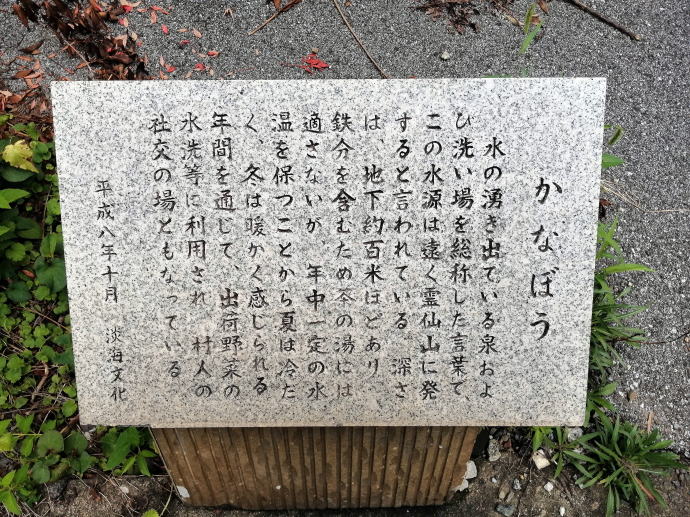 かなぼう
水の湧き出ている泉およ
び洗い場を総称した言葉で、
この水源は遠く霊仙山に発
すると言われている。深さ
は、地下約百米ほどあり
鉄分を含むため茶の湯には
適さないが、年中一定の水
温を保つことから夏は冷た
く、冬は暖かく感じられる
年間を通して、出荷野菜の
水洗等に利用され、村人の
社交の場ともなっている
平成八年十月　淡海文化